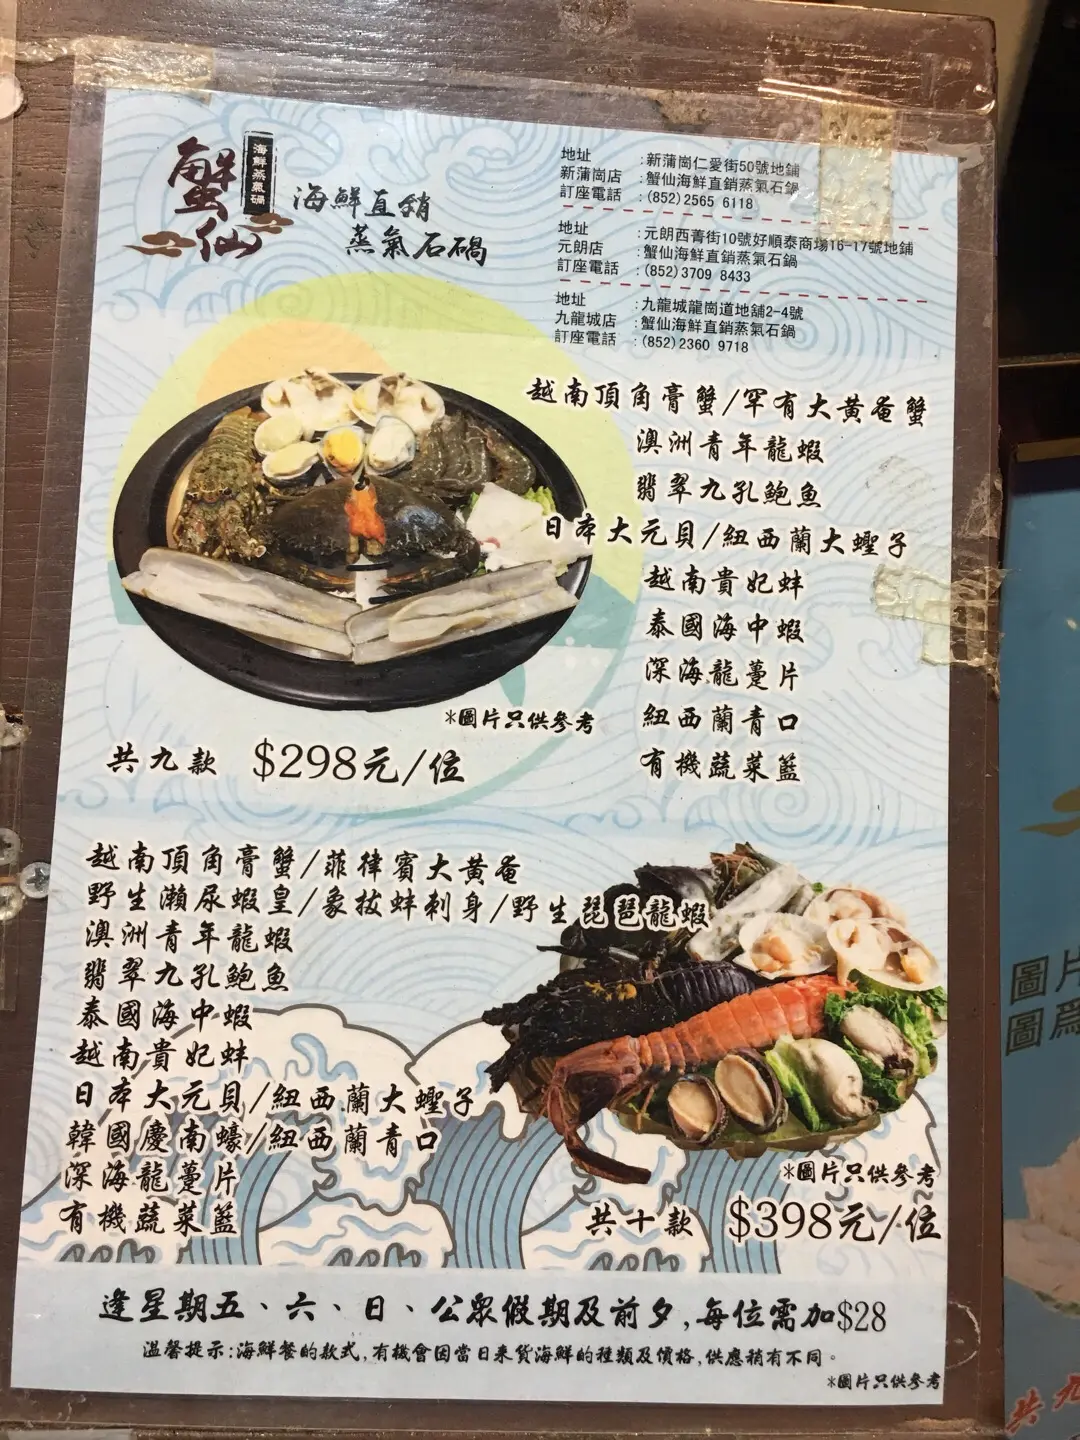 蟹仙
海鮮蒸氣鍋
海鮮直銷
蒸氣石鍋
地址 :新蒲崗仁愛街50號地鋪
新蒲崗店 :蟹仙海鮮直銷蒸氣石鍋
訂座電話 :(852)2565 6118
地址 :元朗西菁街10號好順泰商場16-17號地鋪
元朗店 :蟹仙海鮮直銷蒸氣石鍋
訂座電話 :(852)3709 8433
地址 :九龍城龍崗道地舖2-4號
九龍城店 :蟹仙海鮮直銷蒸氣石鍋
訂座電話 :(852)2360 9718
越南頂角膏蟹/罕有大黃奄蟹
澳洲青年龍蝦
翡翠九孔鮑魚
日本大元貝/紐西蘭大蟶子
越南貴妃蚌
泰國海中蝦
深海龍躉片
紐西蘭青口
有機蔬菜籃
*圖片只供參考
共九款 $298元/位
越南頂角膏蟹/菲律賓大黃奄
野生瀨尿蝦皇/象拔蚌刺身/野生琵琶龍蝦
澳洲青年龍蝦
翡翠九孔鮑魚
泰國海中蝦
越南貴妃蚌
日本大元貝/紐西蘭大蟶子
韓國慶南蠔/紐西蘭青口
深海龍躉片
有機蔬菜籃
*圖片只供參考
共十款 $398元/位
逢星期五、六、日、公眾假期及前夕,每位需加$28
溫馨提示:海鮮餐的款式,有機會因當日來货海鮮的種類及價格,供應稍有不同。
*圖片只供參考
圖片
圖爲
共九